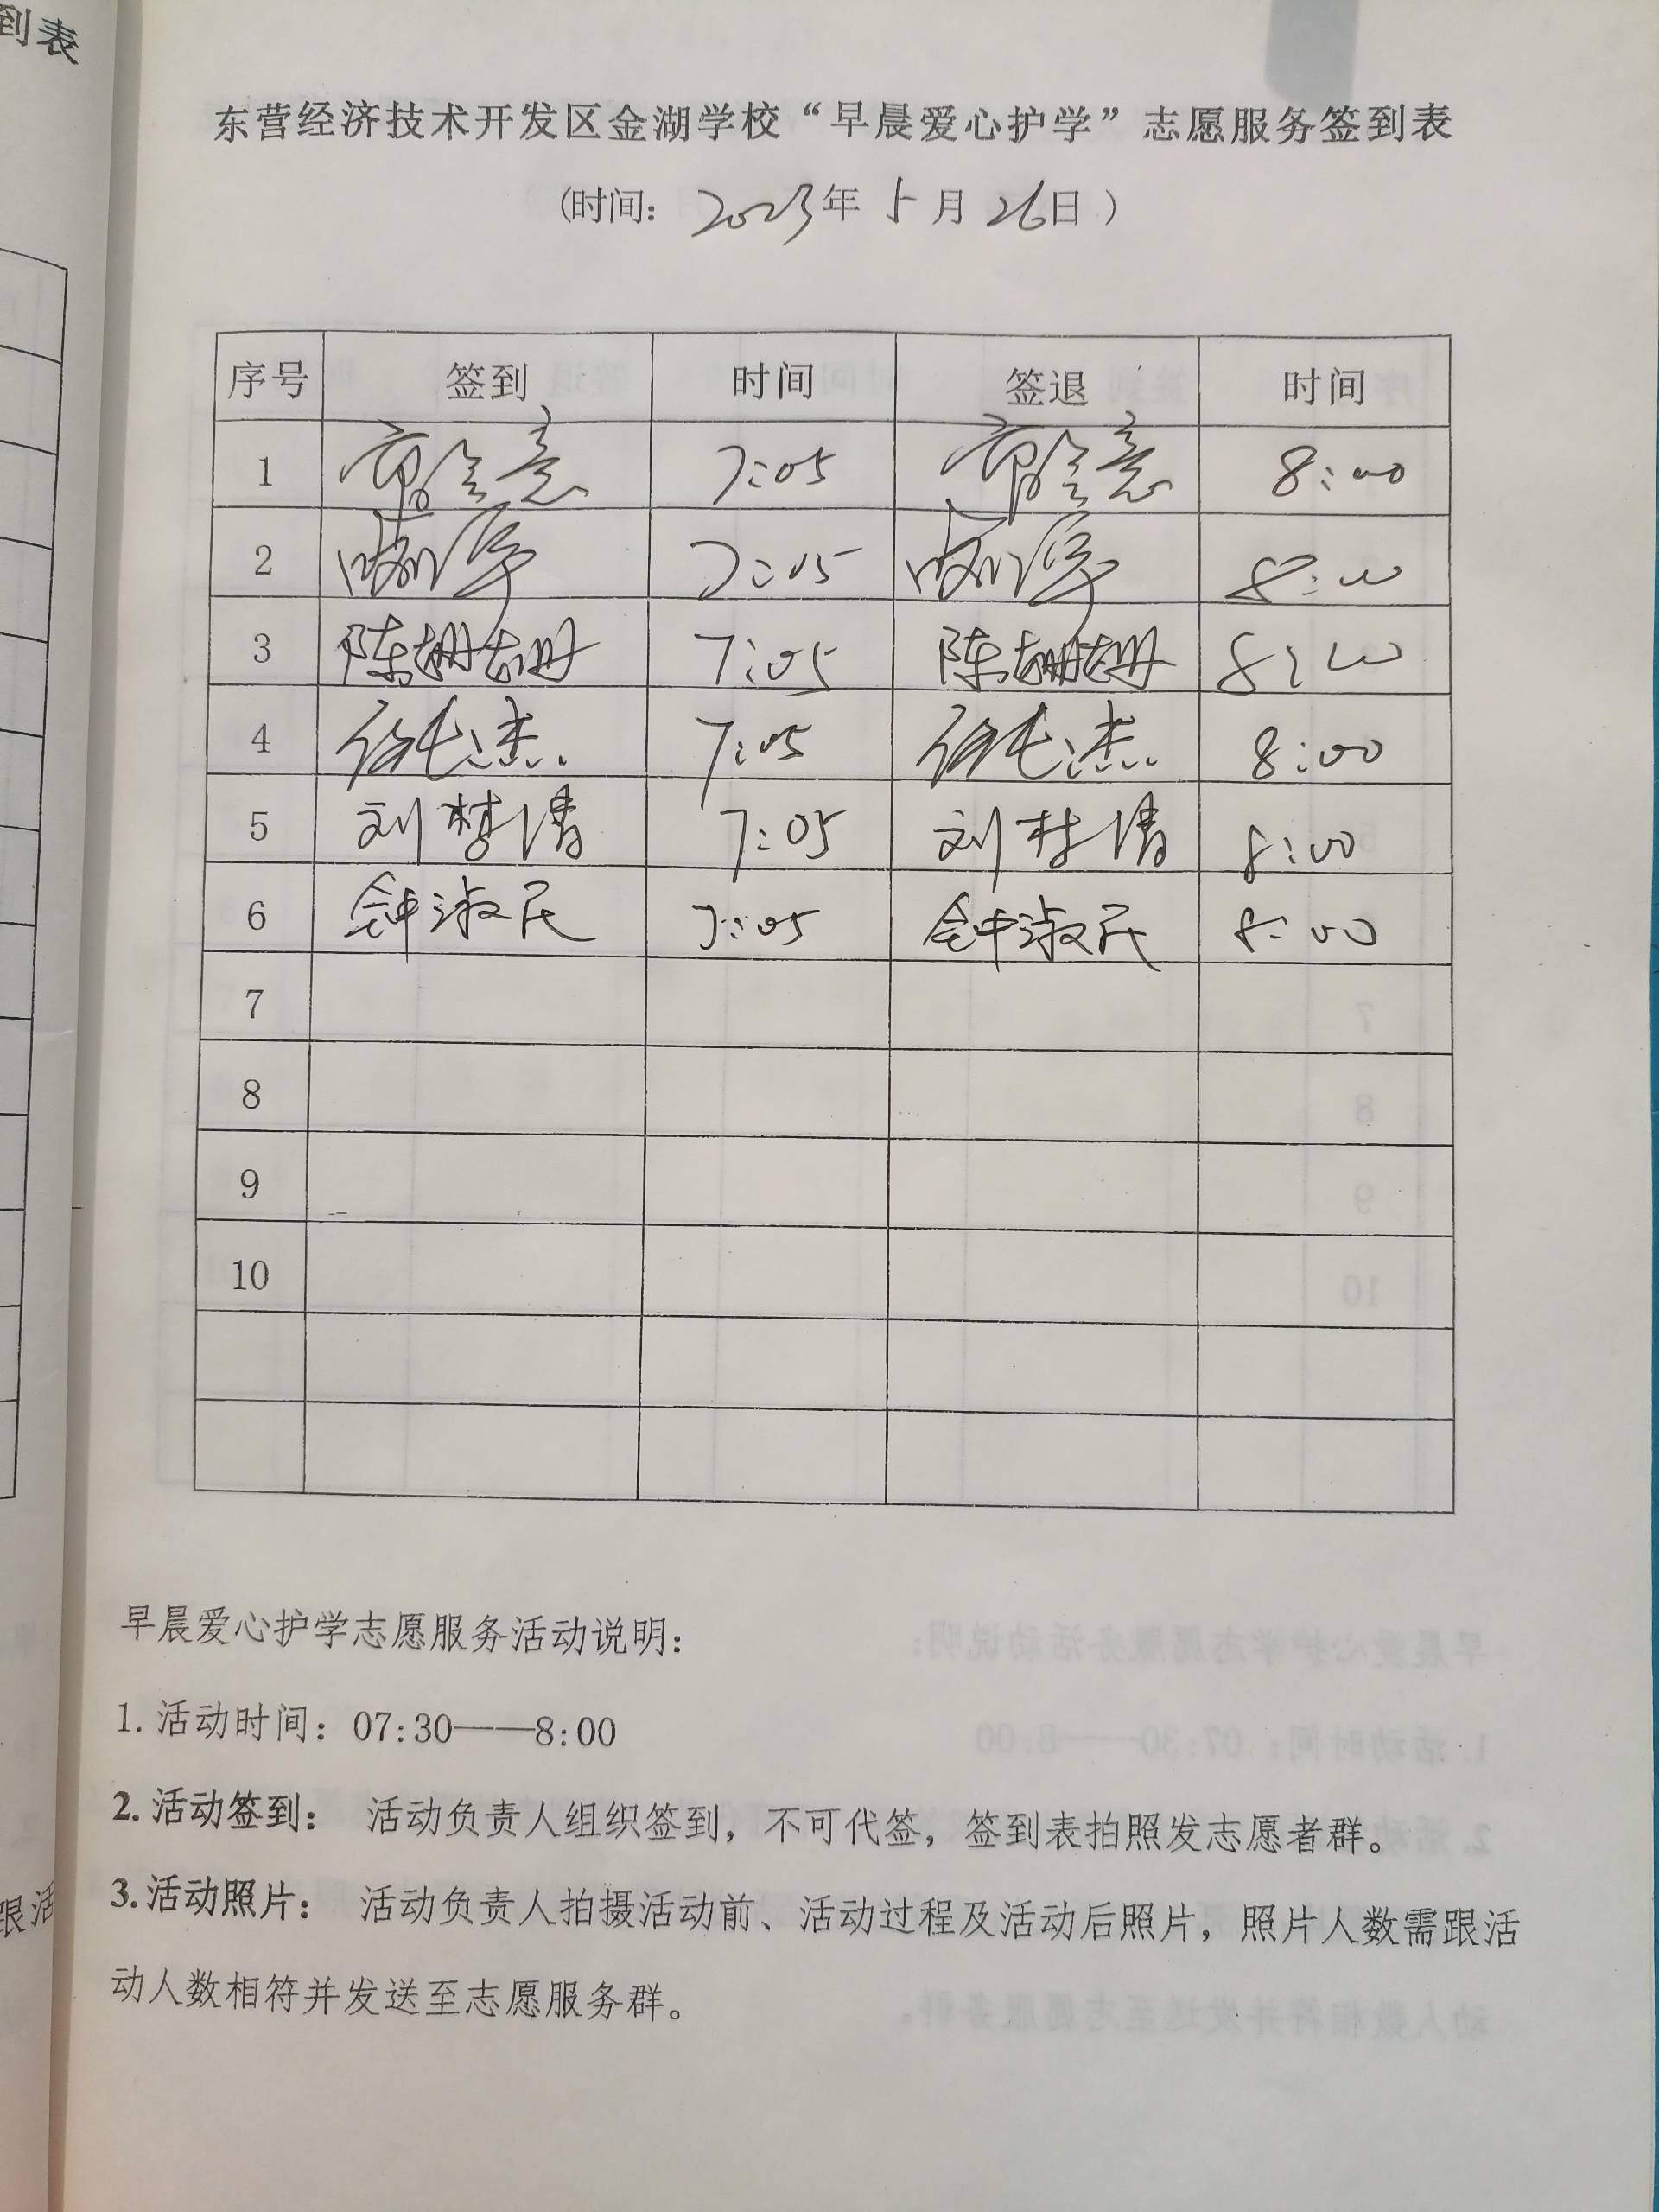 到表
东营经济技术开发区金湖学校“早晨爱心护学”志愿服务签到表
(时间: 2023年 5月 26日 )
序号 签到 时间 签退 时间
1 7:05 8:00
2 7:05 8:00
3 陈姗姗 7:05 陈姗姗 8:00
4 7:05 8:00
5 刘梦倩 7:05 刘梦倩 8:00
6 钟淑民 7:05 钟淑民 8:00
7
8
9
10
早晨爱心护学志愿服务活动说明：
1. 活动时间：07:30——8:00
2. 活动签到： 活动负责人组织签到，不可代签，签到表拍照发志愿者群。
3. 活动照片： 活动负责人拍摄活动前、活动过程及活动后照片，照片人数需跟活
动人数相符并发送至志愿服务群。
跟活